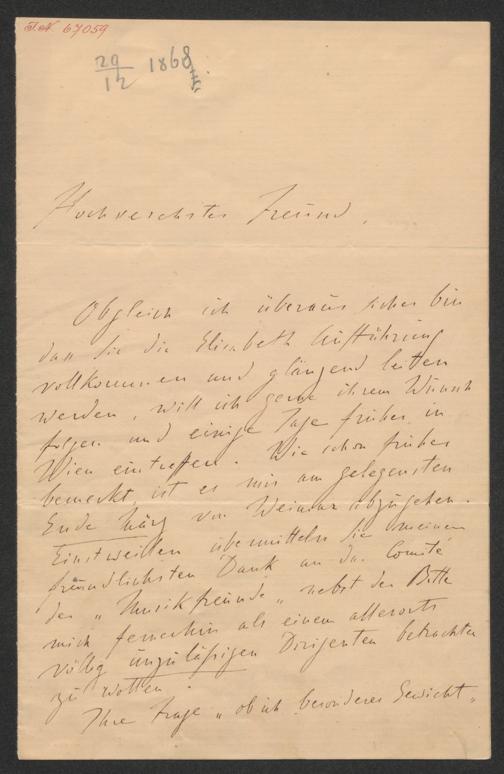 I.N. 67059
29/12 1868
Hochverehrter Freund,
Obgleich ich überaus sicher bin
dass Sie die Elisabeth Aufführung
vollkommen und glänzend leiten
werden, will ich gerne ihrem Wunsch
folgen und einige Tage früher in
Wien eintreffen. Wie schon früher
bemerkt, ist es mir am gelegensten
Ende März von Weimar abzugehen.
Einstweilen übermitteln Sie meinen
freundlichsten Dank an das Comité
der „Musikfreunde„ nebst der Bitte
mich fernerhin als einem allerorts
völlig unzuläßigen Dirigenten betrachten
zu wollen.
Ihre Frage „ob ich besonderes Gewicht„